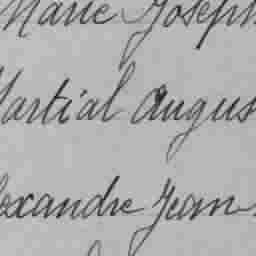 Marie Joseph
Martial Augus
lexandre Jean